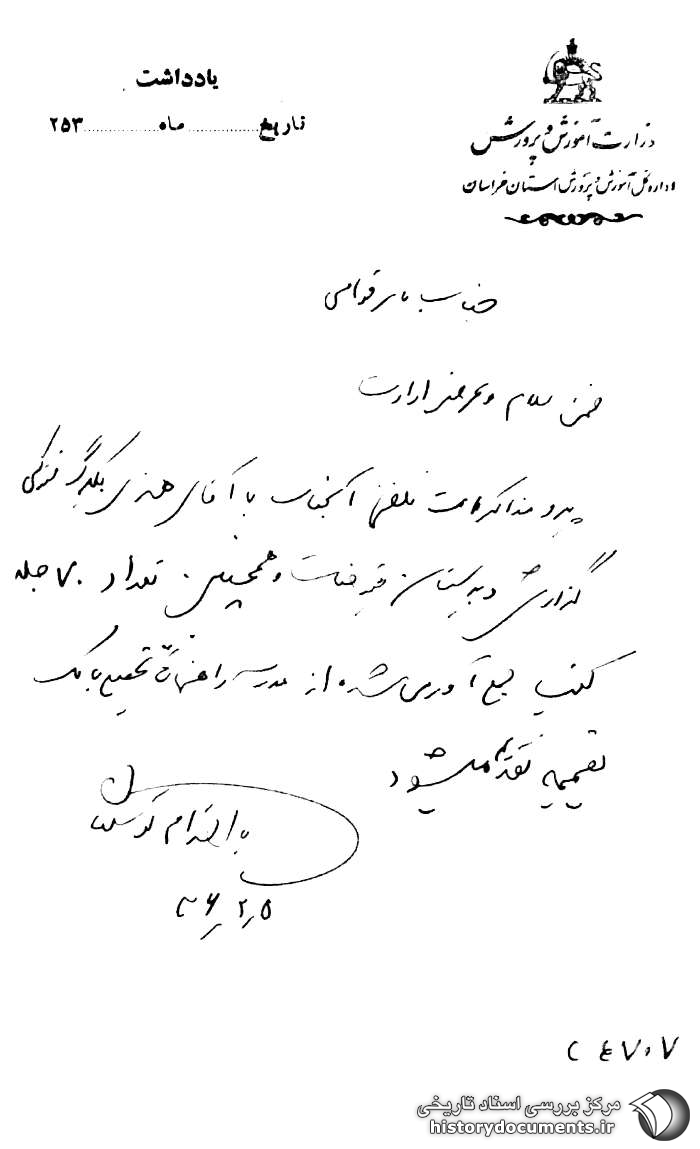 وزارت آموزش و پرورش
اداره کل آموزش و پرورش استان خراسان
یادداشت
تاریخ ماه ۲۵۳
جناب قوامی
ضمن سلام و عرض ارادت
پیرو مذاکرات تلفنی آنجناب با آقای هنری یکبرگ فتوکپی
گزارش دبیرستان فیوضات و همچنین تعداد ۷۰ جلد
کتب جمع آوری شده از مدرسه راهنمائی تحصیلی بابک
بضمیمه تقدیم میشود
با احترام
۳۶٫۲٫۵
۲۴۷۰۷
مرکز بررسی اسناد تاریخی
historydocuments.ir